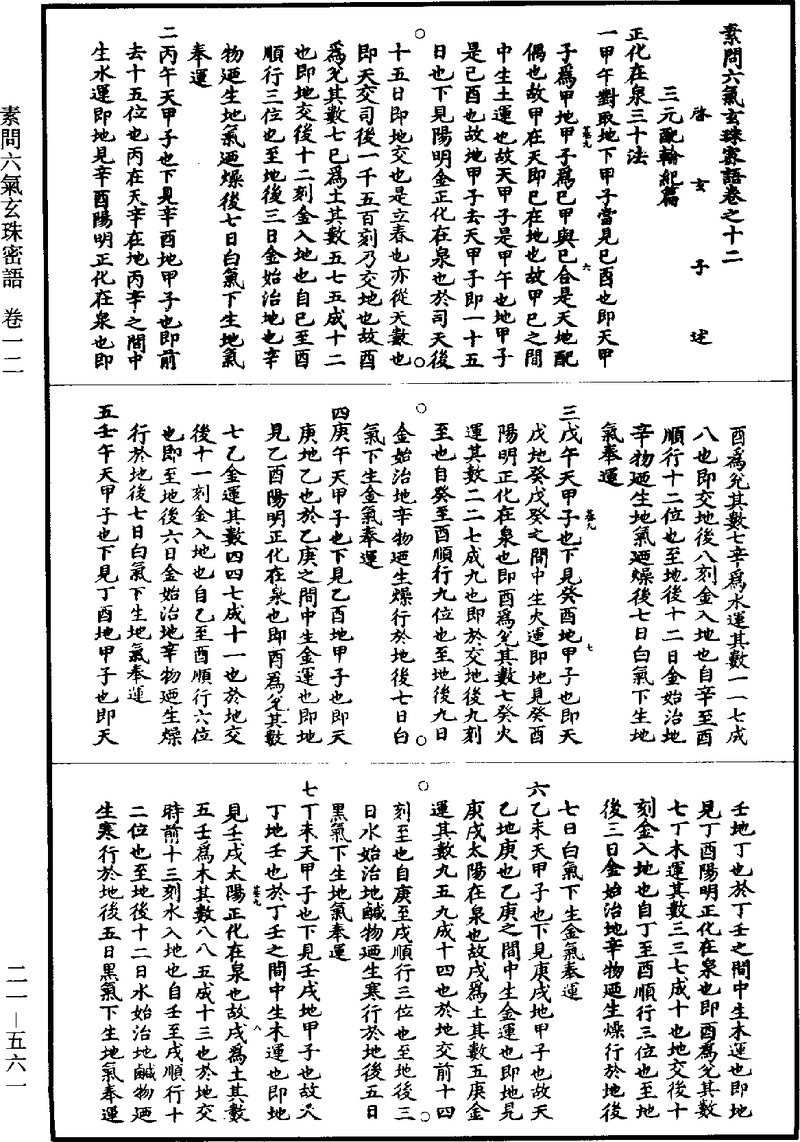 素問六氣玄珠密語 卷一二
二一—五六一
素問六氣玄珠密語卷之十二
啓玄子述
三元配輪紀篇
正化在泉三十法
一甲午對取地下甲子當見己酉也即天甲
子為甲地甲子為己甲與己合是天地配
偶也故甲在天即己在地也故甲己之間
中生土運也故天甲子是甲午也地甲子
是己酉也故地甲子去天甲子即一十五
日也下見陽明金正化在泉也於司天後
十五日即地交也是立春也亦從天數也
即天交司後一千五百刻乃交地也故酉
為兌其數七己為土其數五七五成十二
也即地交後十二刻金入地也自己至酉
順行三位也至地後三日金始治地也辛
物廼生地氣廼燥後七日白氣下生地氣
奉運
二丙午天甲子也下見辛酉地甲子也即前
去十五位也丙在天辛在地丙辛之間中
生水運即地見辛酉陽明正化在泉也即
酉為兌其數七辛為水運其數一一七成
八也即交地後八刻金入地也自辛至酉
順行十二位也至地後十二日金始治地
辛物廼生地氣廼燥後七日白氣下生地
氣奉運
三戊午天甲子也下見癸酉地甲子也即天
戊地癸戊癸之間中生火運即地見癸酉
陽明正化在泉也即酉為兌其數七癸火
運其數二二七成九也即於交地後九刻
至也自癸至酉順行九位也至地後九日
金始治地辛物廼生燥行於地後七日白
氣下生金氣奉運
四庚午天甲子也下見乙酉地甲子也即天
庚地乙也於乙庚之間中生金運也即地
見乙酉陽明正化在泉也即酉為兌其數
七乙金運其數四四七成十一也於地交
後十一刻金入地也自乙至酉順行六位
也即至地後六日金始治地辛物廼生燥
行於地後七日白氣下生地氣奉運
五壬午天甲子也下見丁酉地甲子也即天
壬地丁也於丁壬之間中生木運也即地
見丁酉陽明正化在泉也即酉為兌其數
七丁木運其數三三七成十也地交後十
刻金入地也自丁至酉順行三位也至地
後三日金始治地辛物廼生燥行於地後
七日白氣下生金氣奉運
六乙未天甲子也下見庚戌地甲子也故天
乙地庚也乙庚之間中生金運也即地見
庚戌太陽在泉也故戌為土其數五庚金
運其數九五九成十四也於地交前十四
刻至也自庚至戌順行三位也至地後三
日水始治地鹹物廼生寒行於地後五日
黑氣下生地氣奉運
七丁未天甲子也下見壬戌地甲子也故天
丁地壬也於丁壬之間中生木運也即地
見壬戌太陽正化在泉也故戌為土其數
五壬為木其數八八五成十三也於地交
時前十三刻水入地也自壬至戌順行十
二位也至地後十二日水始治地鹹物廼
生寒行於地後五日黑氣下生地氣奉運